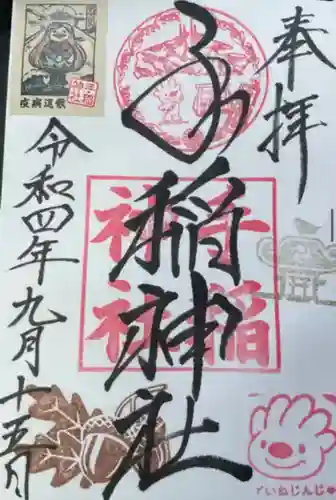 奉拝
手稲神社
手稲
神社
令和四年九月十五日
疫病退散
ていねじんじゃ